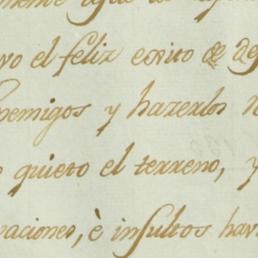 el feliz exito de
enemigos y hazerlos
quieto el terreno, y
vaciones, è insultos